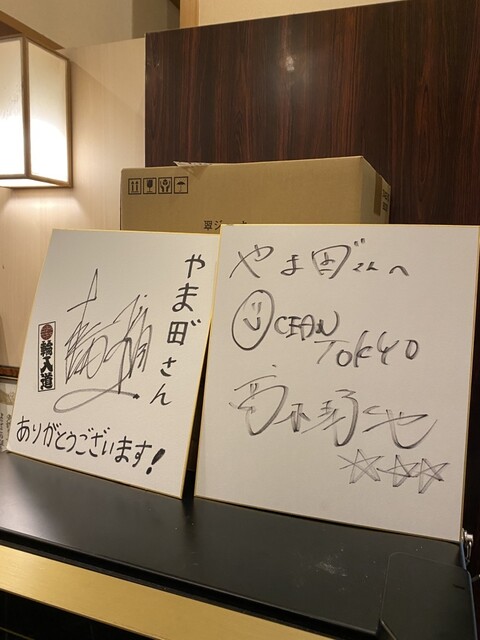 翠ジ
やま田゛さん
輪入道
ありがとうございます!
やま田゛さんへ
OCEAN
TOKYO
高木琢也